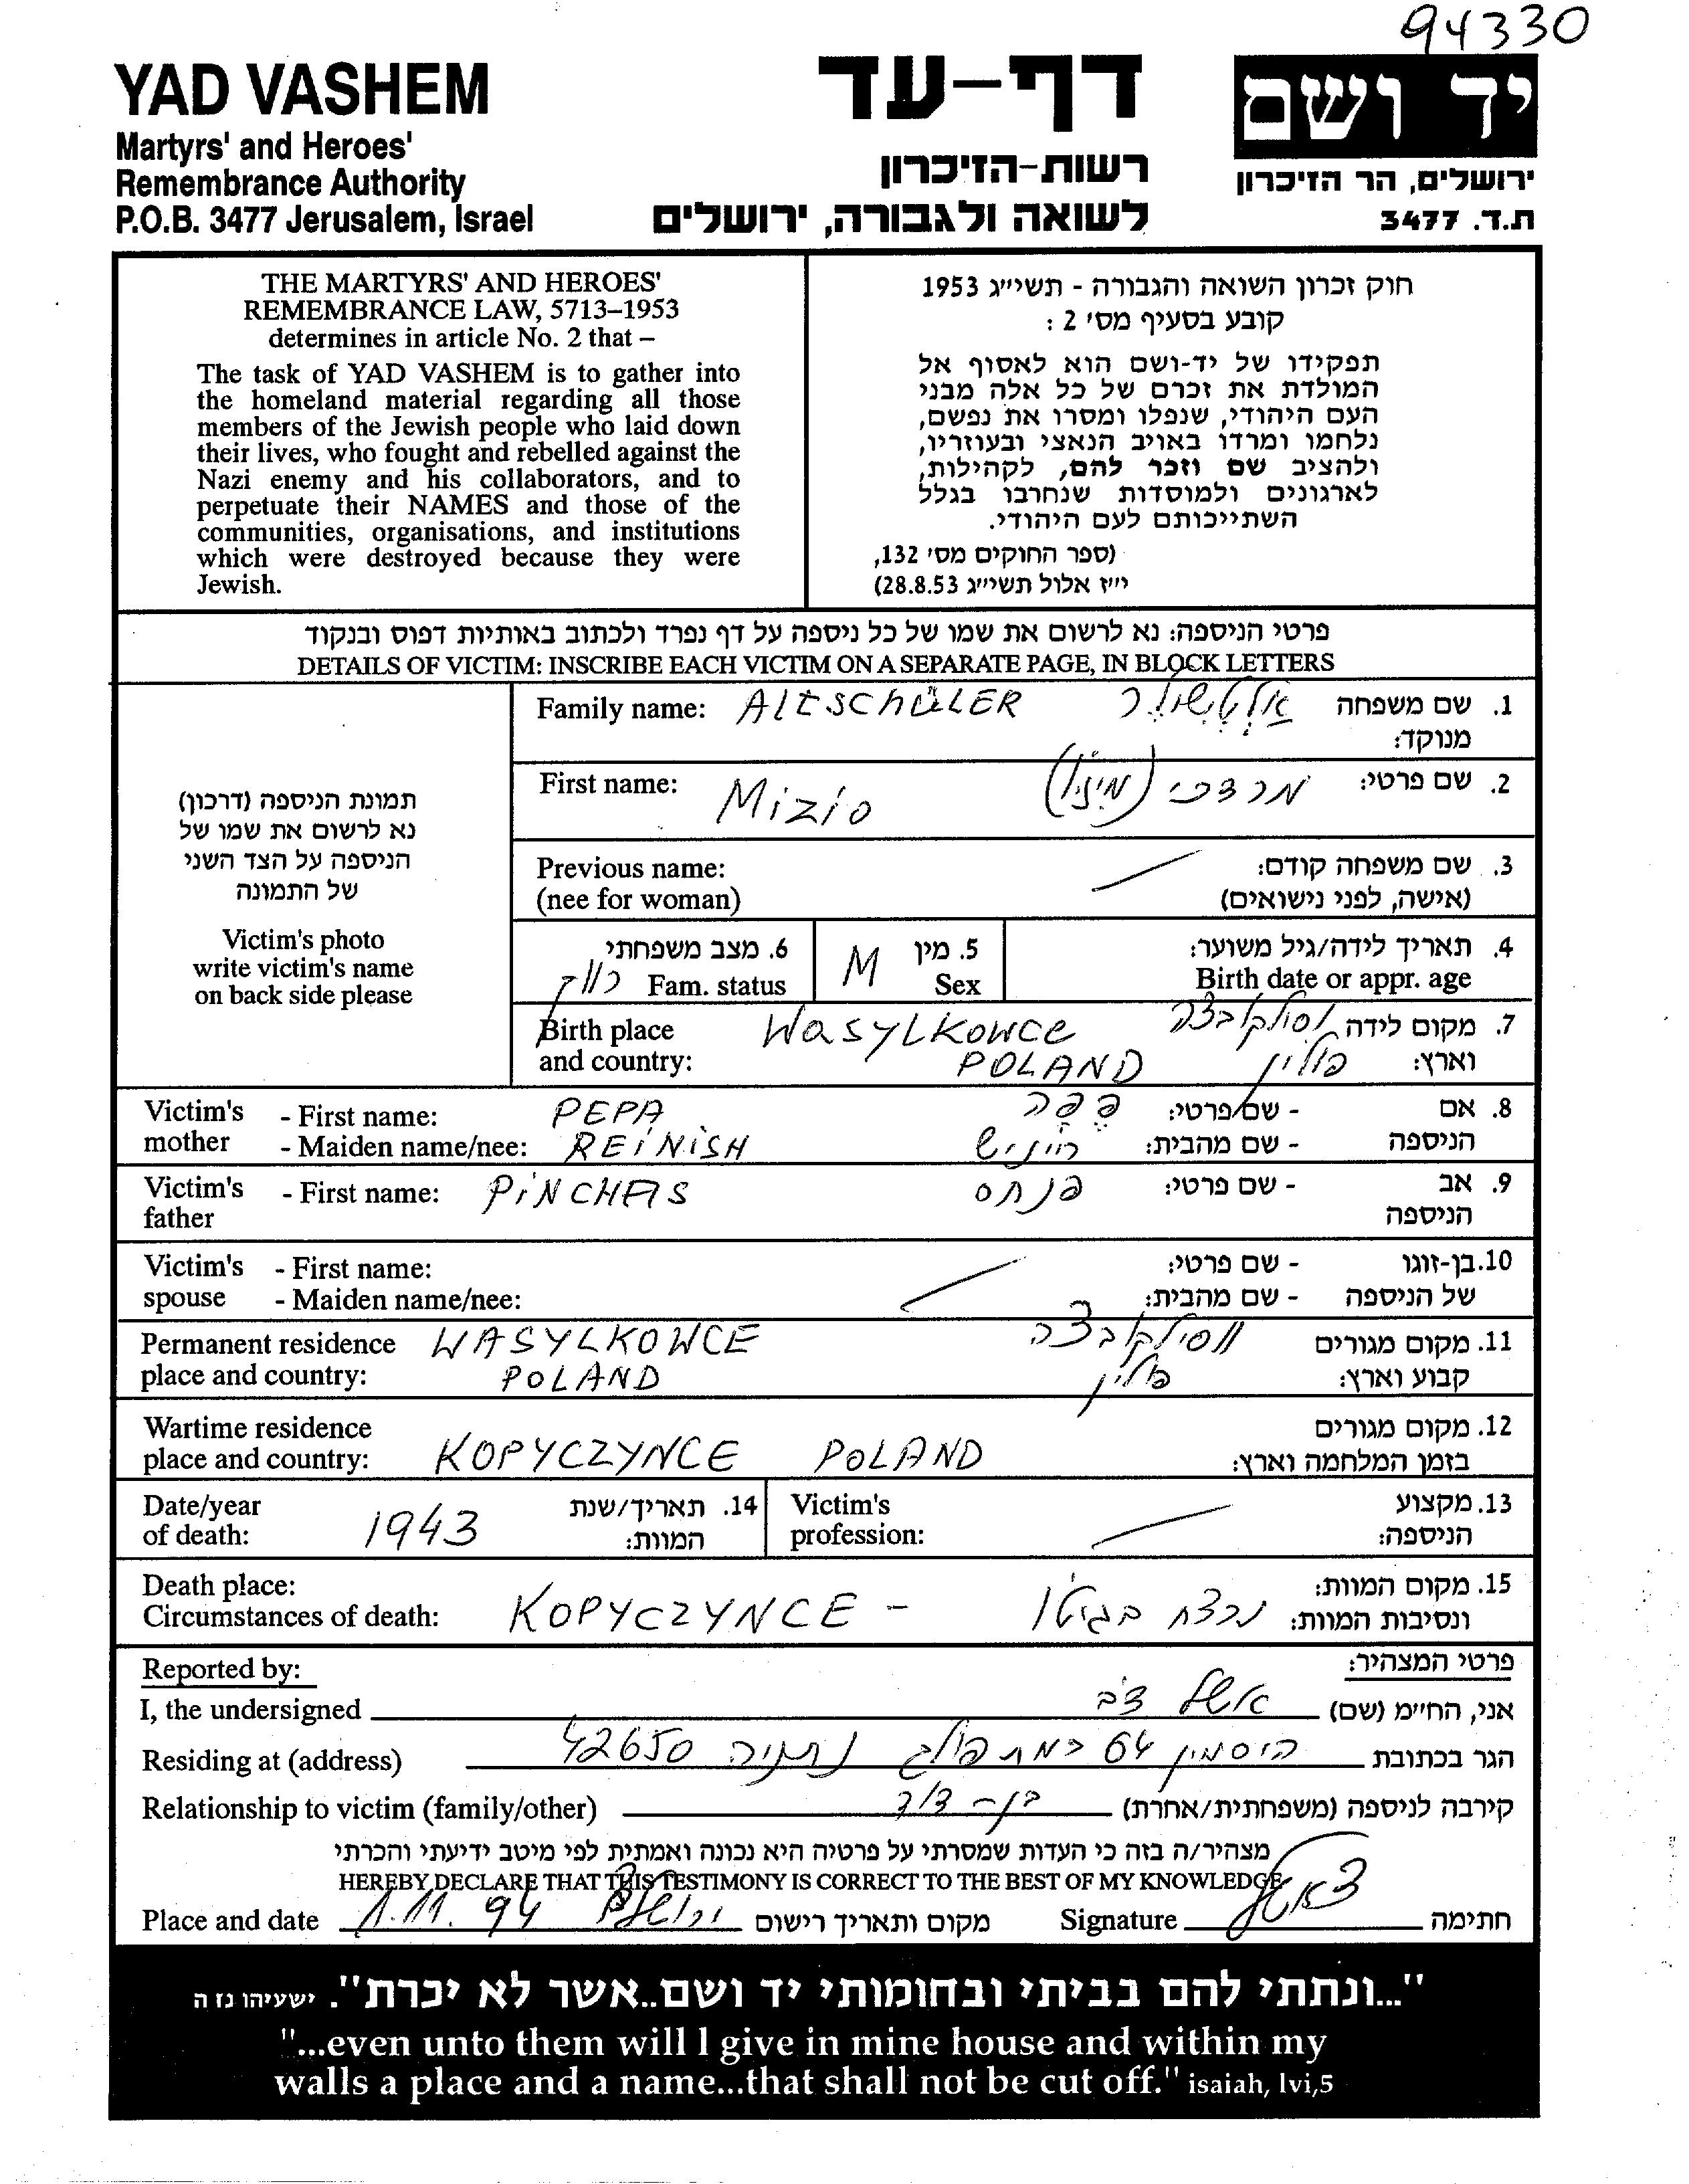 94330
YAD VASHEM
Martyrs' and Heroes'
Remembrance Authority
P.O.B. 3477 Jerusalem, Israel
דף-עד
רשות-הזיכרון
לשואה ולגבורה, ירושלים
יד ושם
ירושלים, הר הזיכרון
ת.ד. 3477
THE MARTYRS' AND HEROES'
REMEMBRANCE LAW, 5713–1953
determines in article No. 2 that –
The task of YAD VASHEM is to gather into
the homeland material regarding all those
members of the Jewish people who laid down
their lives, who fought and rebelled against the
Nazi enemy and his collaborators, and to
perpetuate their NAMES and those of the
communities, organisations, and institutions
which were destroyed because they were
Jewish.
חוק זכרון השואה והגבורה - תשי"ג 1953
קובע בסעיף מס' 2 :
תפקידו של יד-ושם הוא לאסוף אל
המולדת את זכרם של כל אלה מבני
העם היהודי, שנפלו ומסרו את נפשם,
נלחמו ומרדו באויב הנאצי ובעוזריו,
ולהציב שם וזכר להם, לקהילות,
לארגונים ולמוסדות שנחרבו בגלל
השתייכותם לעם היהודי.
(ספר החוקים מס' 132,
י"ז אלול תשי"ג 28.8.53)
פרטי הניספה: נא לרשום את שמו של כל ניספה על דף נפרד ולכתוב באותיות דפוס ובנקוד
DETAILS OF VICTIM: INSCRIBE EACH VICTIM ON A SEPARATE PAGE, IN BLOCK LETTERS
תמונת הניספה (דרכון)
נא לרשום את שמו של
הניספה על הצד השני
של התמונה
Victim's photo
write victim's name
on back side please
Family name: AltSChÜLER אלטשולר 1. שם משפחה
מנוקד:
First name: Mizio מרדכי (מיזיו) 2. שם פרטי:
Previous name: 3. שם משפחה קודם:
(nee for woman) (אישה, לפני נישואים)
6. מצב משפחתי 5. מין 4. תאריך לידה/גיל משוער:
רווק Fam. status M Sex Birth date or appr. age
Birth place WaSYLKOWCE וסילקובצה 7. מקום לידה
and country: POLAND פולין וארץ:
Victim's - First name: PEPA פפה - שם פרטי: 8. אם
mother - Maiden name/nee: REiNiSH רייניש - שם מהבית: הניספה
Victim's - First name: PiNCHAS פנחס - שם פרטי: 9. אב
father הניספה
Victim's - First name: - שם פרטי: 10. בן-זוגו
spouse - Maiden name/nee: - שם מהבית: של הניספה
Permanent residence WASYLKOWCE ווסילקובצה 11. מקום מגורים
place and country: POLAND פולין קבוע וארץ:
Wartime residence 12. מקום מגורים
place and country: KOPYCZYNCE POLAND בזמן המלחמה וארץ:
Date/year 14. תאריך/שנת Victim's 13. מקצוע
of death: 1943 המוות: profession: הניספה:
Death place: 15. מקום המוות:
Circumstances of death: KOPYCZYNCE - נרצח בגיטו ונסיבות המוות:
Reported by: פרטי המצהיר:
I, the undersigned אשל צבי אני, הח"מ (שם)
Residing at (address) היסמין 64 רמת פולג נתניה 42650 הגר בכתובת
Relationship to victim (family/other) בן-דוד קירבה לניספה (משפחתית/אחרת)
מצהיר/ה בזה כי העדות שמסרתי על פרטיה היא נכונה ואמתית לפי מיטב ידיעתי והכרתי
HEREBY DECLARE THAT THIS TESTIMONY IS CORRECT TO THE BEST OF MY KNOWLEDGE
Place and date 1.11.94 ירושלים מקום ותאריך רישום Signature חתימה
"...ונתתי להם בביתי ובחומותי יד ושם..אשר לא יכרת". ישעיהו נז ה
"...even unto them will I give in mine house and within my
walls a place and a name...that shall not be cut off." isaiah, lvi,5